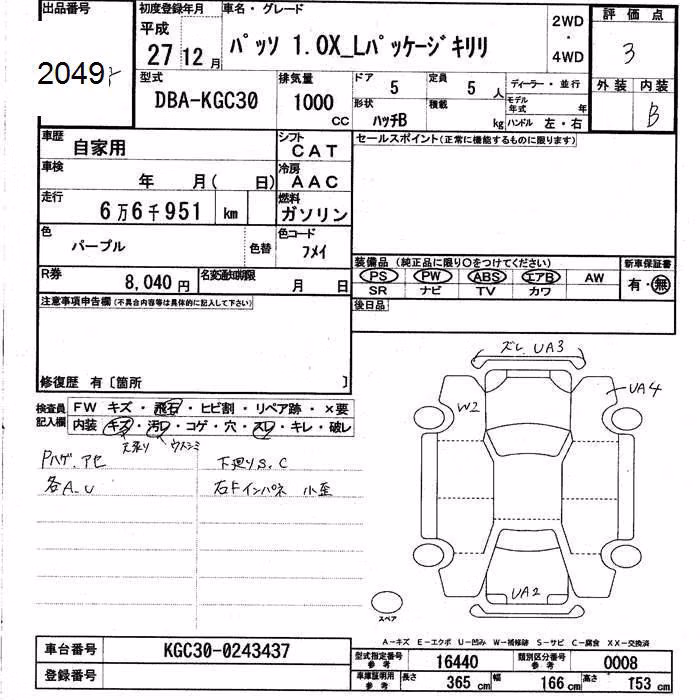 出品番号
2049
初度登録年月
平成
27 12 月
車名・グレード
パッソ 1.0X_Lパッケージキリリ
2WD
・
4WD
評価点
3
外装 内装
B
型式
DBA-KGC30
排気量
1000
CC
ドア
5
定員
5 人
形状
ハッチB
積載
kg
ディーラー・並行
モデル年式 年
ハンドル 左・右
車歴
自家用
シフト
CAT
車検
年 月( 日)
冷房
AAC
走行
6万6千951 km
燃料
ガソリン
色
パープル
色替
色コード
フメイ
R券
8,040 円
名変通知期限
月 日
セールスポイント(正常に機能するものに限ります)
装備品(純正品に限り○をつけてください)
PS PW ABS エアB AW
SR ナビ TV カワ
新車保証書
有・無
後日品
注意事項申告欄(不具合内容等は具体的に記入して下さい)
修復歴 有〔箇所 〕
検査員記入欄
FW キズ・飛石・ヒビ割・リペア跡・×要
内装 キズ・汚レ・コゲ・穴・スレ・キレ・破レ
天張り ウスシミ
Pハゲ.アセ
各A.U
下廻りS.C
右Fインパネ 小歪
ズレ UA3
W2
UA4
UA2
スペア
A−キズ E−エクボ U−凹み W−補修跡 S−サビ C−腐食 XX−交換済
車台番号
KGC30-0243437
登録番号
型式指定番号 参考
16440
類別区分番号 参考
0008
車庫証明用 参考
長さ 365 cm
幅 166 cm
高さ 153 cm